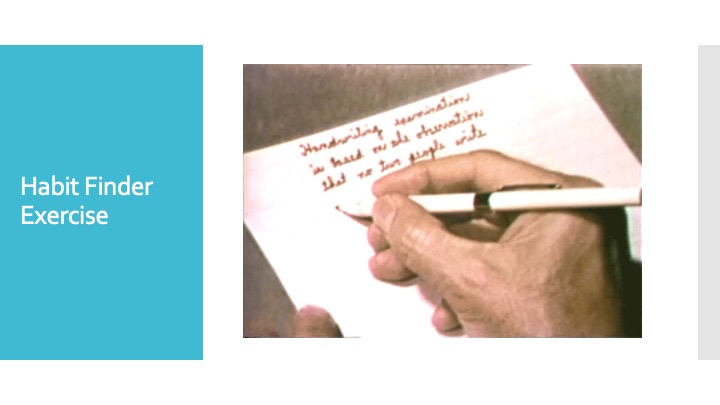 Habit Finder
Exercise
Handwriting examination
is based on the observation
that no two people write